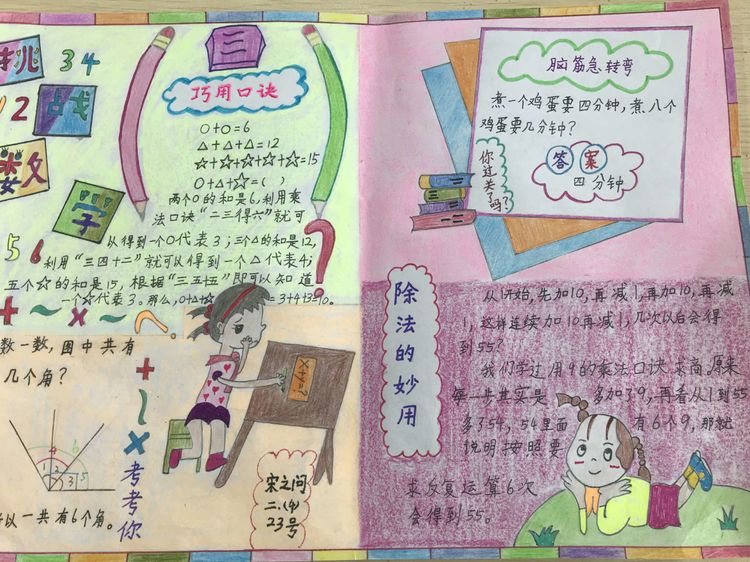 挑
3 4
1 2
战
数
学
5 6
三
巧用口诀
○+○=6
△+△+△=12
☆+☆+☆+☆+☆=15
○+△+☆=( )
两个○的和是6,利用乘
法口诀“二三得六”就可
以得到一个○代表3;三个△的和是12,
利用“三四十二”就可以得到一个△代表4;
五个☆的和是15,根据“三五十五”即可以知道
一个☆代表3。那么,○+△+☆=3+4+3=10。
+ ~ × ~ ?
数一数,图中共有
几个角?
1 2 3 5
以一共有6个角。
+ ~ ×
考考你
x+y=?
宋之问
二.(4)
23号
脑筋急转弯
煮一个鸡蛋要四分钟,煮八个
鸡蛋要几分钟?
答案
四分钟
你过关了吗?
除法的妙用
从1开始,先加10,再减1,再加10,再减
1,这样连续加10再减1,几次以后会得
到55?
我们学过用9的乘法口诀求商,原来
每一步其实是多加了9,再看从1到55
多了54,54里面有6个9,那就
说明按照要
求反复运算6次
会得到55。